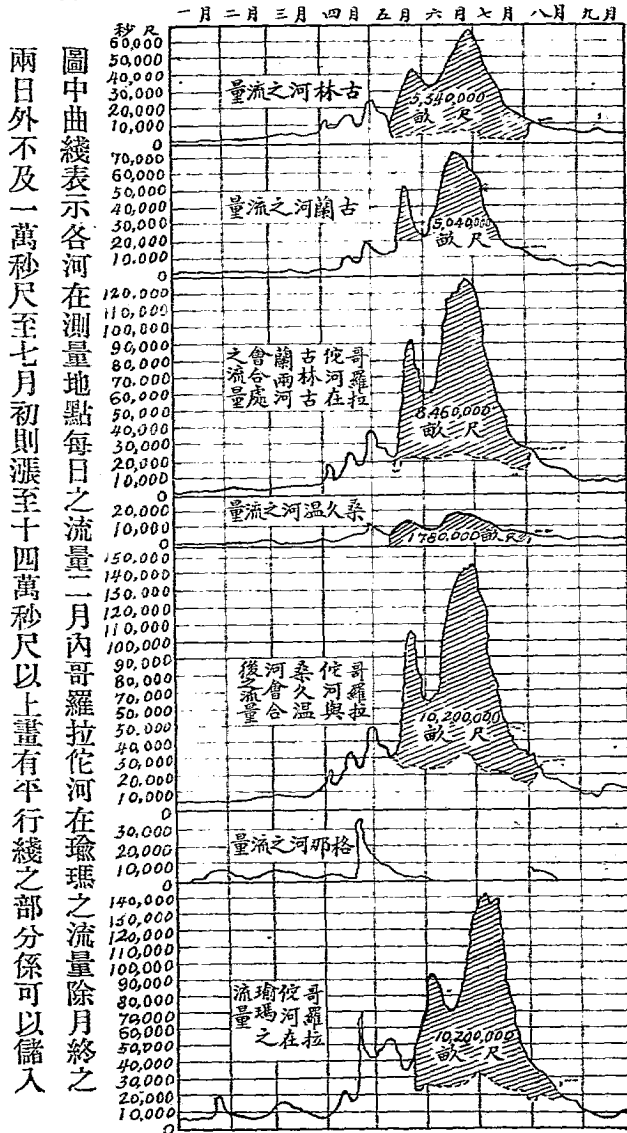 一月 二月 三月 四月 五月 六月 七月 八月 九月
秒尺
60,000
50,000
40,000
30,000
20,000
10,000
0
古林河之流量
5,540,000
畝尺
70,000
60,000
50,000
40,000
30,000
20,000
10,000
0
古蘭河之流量
5,040,000
畝尺
120,000
110,000
100,000
90,000
80,000
70,000
60,000
50,000
40,000
30,000
20,000
10,000
0
哥羅拉
佗河在
古林古
蘭兩河
會合處
之流量
8,460,000
畝尺
20,000
10,000
0
桑久温河之流量
1780.000畝尺
150,000
140,000
130,000
120,000
110,000
100,000
90,000
80,000
70,000
60,000
50,000
40,000
30,000
20,000
10,000
0
哥羅拉
佗河與
桑久温
河會合
後之流量
10,200,000
畝尺
30,000
20,000
10,000
0
格那河之流量
140,000
130,000
120,000
110,000
100,000
90,000
80,000
70,000
60,000
50,000
40,000
30,000
20,000
10,000
0
哥羅拉
佗河在
瑜瑪之
流量
10,200,000
畝尺
圖中曲綫表示各河在測量地點每日之流量二月內哥羅拉佗河在瑜瑪之流量除月終之
兩日外不及一萬秒尺至七月初則漲至十四萬秒尺以上畫有平行綫之部分係可以儲入